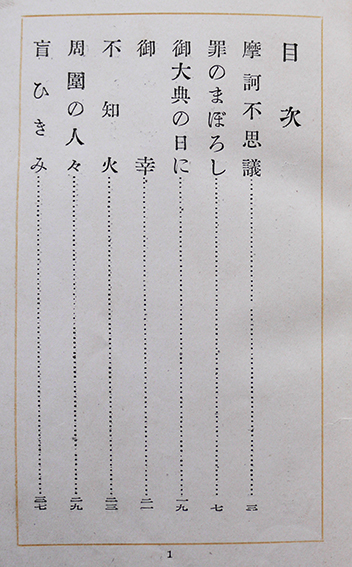 目次
摩訶不思議……三
罪のまぼろし……七
御大典の日に……一九
御幸……二一
不知火……二三
周圍の人々……二九
盲ひきみ……三七
1